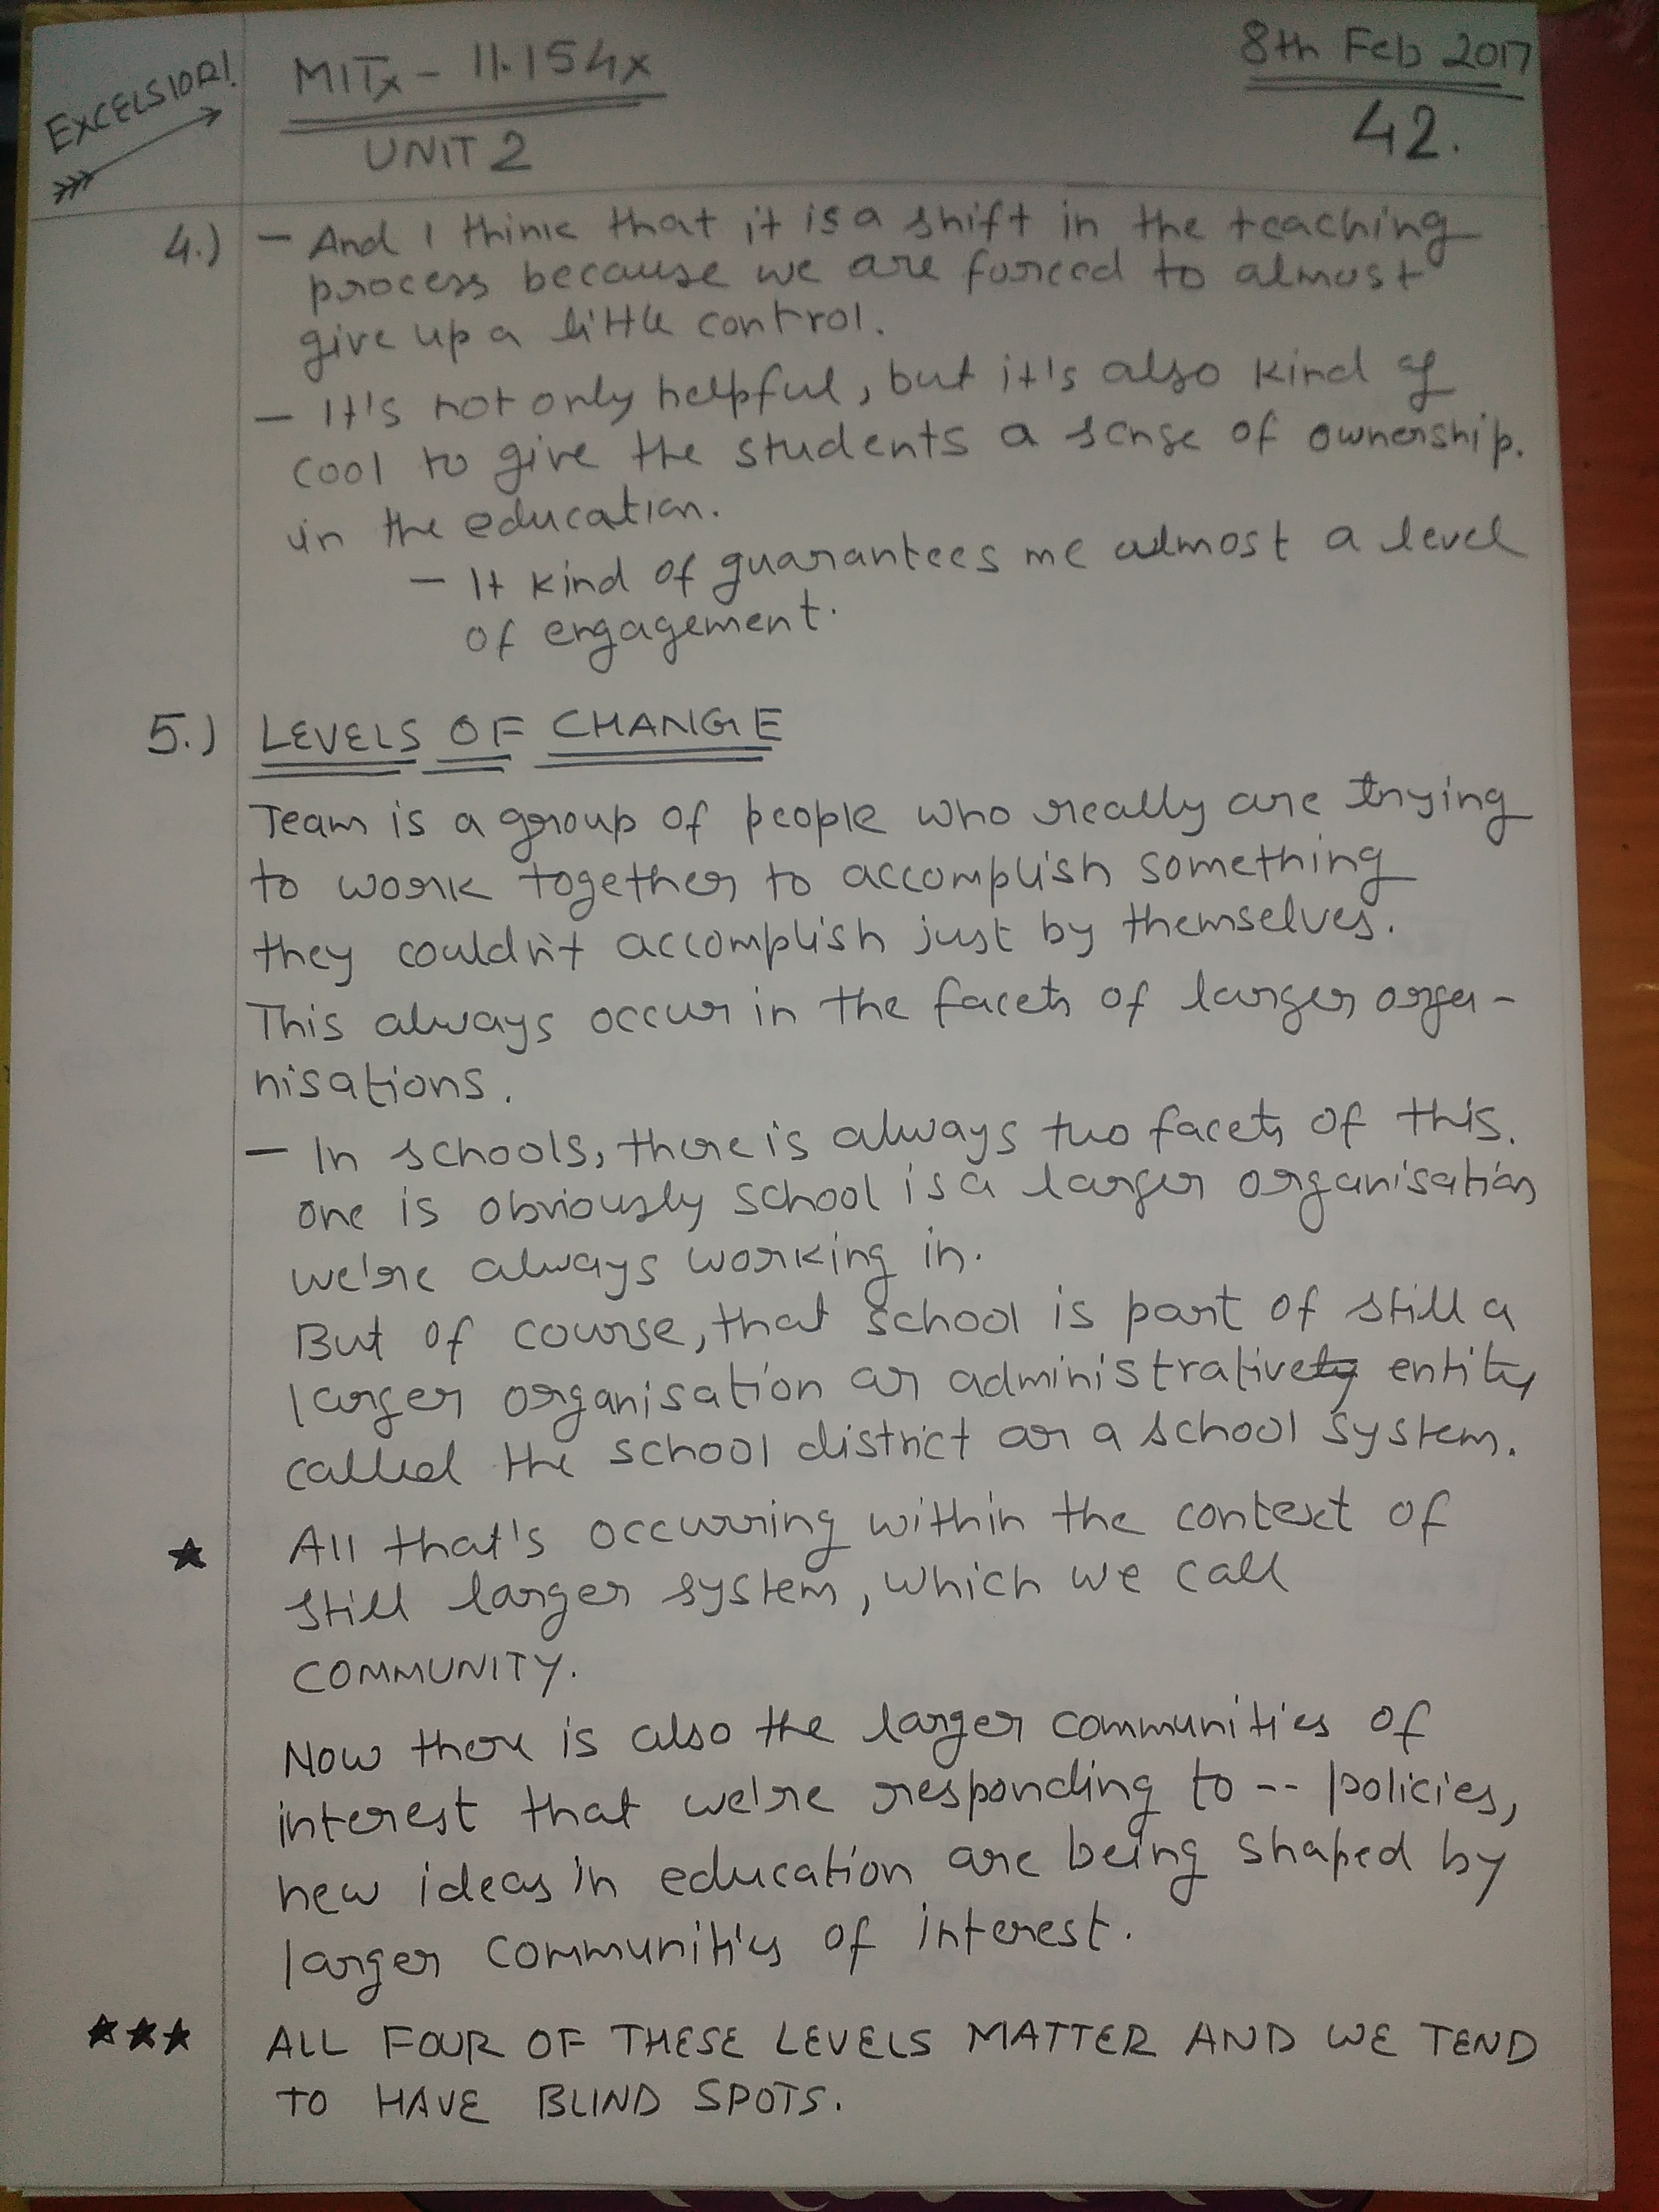 EXCELSIOR!
MITx - 11.154x
UNIT 2
8th Feb 2017
42.
4.) - And I think that it is a shift in the teaching
process because we are forced to almost
give up a little control.
- It's not only helpful, but it's also kind of
cool to give the students a sense of ownership.
in the education.
- It kind of guarantees me almost a level
of engagement.
5.) LEVELS OF CHANGE
Team is a group of people who really are trying
to work together to accomplish something
they couldn't accomplish just by themselves.
This always occur in the facets of larger orga-
nisations.
- In schools, there is always two facets of this.
one is obviously school is a larger organisation
we're always working in.
But of course, that school is part of still a
larger organisation or administrative entity
called the school district or a school system.
★ All that's occurring within the context of
still larger system, which we call
COMMUNITY.
Now there is also the larger communities of
interest that we're responding to -- policies,
new ideas in education are being shaped by
larger communities of interest.
★★★ ALL FOUR OF THESE LEVELS MATTER AND WE TEND
TO HAVE BLIND SPOTS.